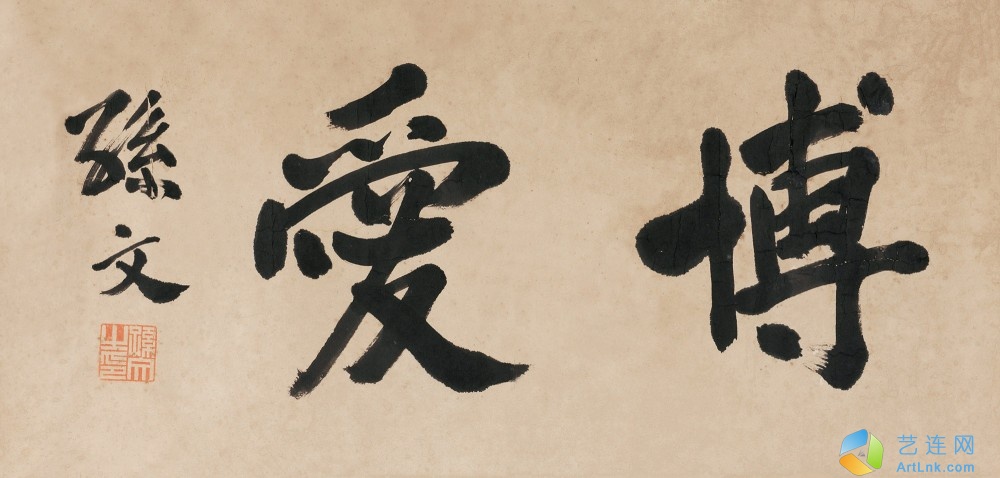 博愛
孫文
孫文之印
艺连网
ArtLnk.com